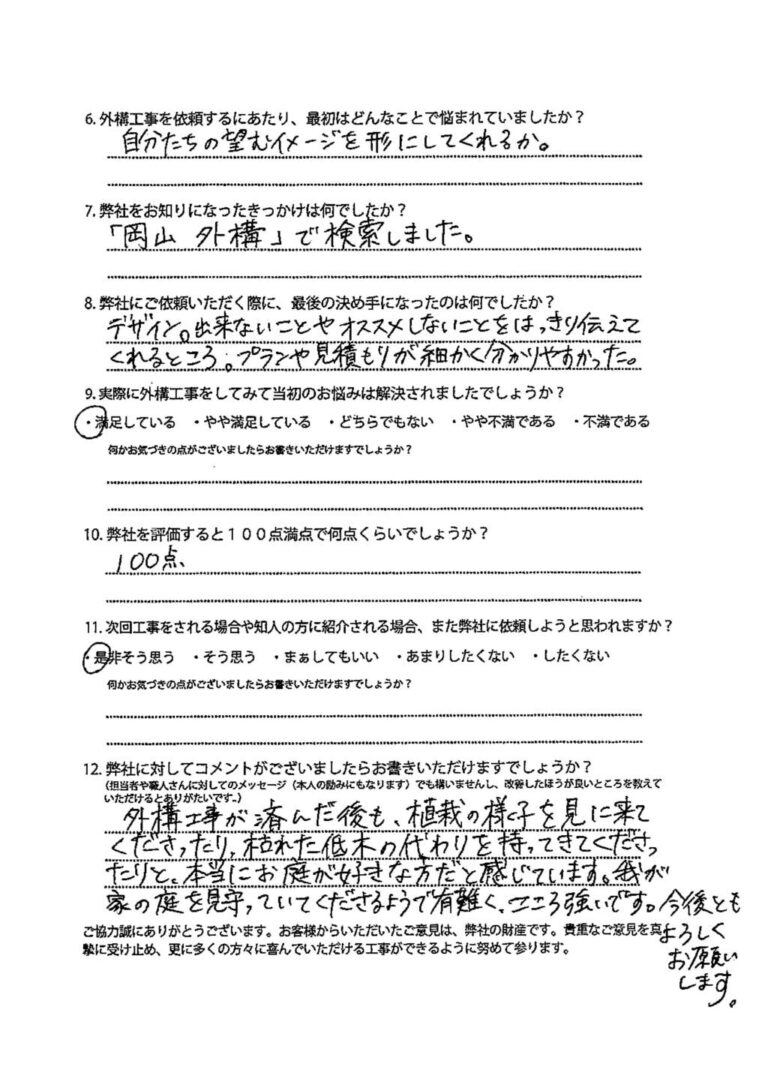 6. 外構工事を依頼するにあたり、最初はどんなことで悩まれていましたか？
自分たちの望むイメージを形にしてくれるか。
7. 弊社をお知りになったきっかけは何でしたか？
「岡山 外構」で検索しました。
8. 弊社にご依頼いただく際に、最後の決め手になったのは何でしたか？
デザイン。出来ないことやオススメしないことをはっきり伝えて
くれるところ。プランや見積もりが細かく分かりやすかった。
9. 実際に外構工事をしてみて当初のお悩みは解決されましたでしょうか？
・満足している ・やや満足している ・どちらでもない ・やや不満である ・不満である
何かお気づきの点がございましたらお書きいただけますでしょうか？
10. 弊社を評価すると１００点満点で何点くらいでしょうか？
100点、
11. 次回工事をされる場合や知人の方に紹介される場合、また弊社に依頼しようと思われますか？
・是非そう思う ・そう思う ・まぁしてもいい ・あまりしたくない ・したくない
何かお気づきの点がございましたらお書きいただけますでしょうか？
12. 弊社に対してコメントがございましたらお書きいただけますでしょうか？
（担当者や職人さんに対してのメッセージ（本人の励みにもなります）でも構いませんし、改善したほうが良いところを教えて
いただけるとありがたいです。）
外構工事が済んだ後も、植栽の様子を見に来て
くださったり、枯れた低木の代わりを持ってきてくださっ
たりと、本当にお庭が好きな方だと感じています。我が
家の庭を見守っていてくださるようで有難く、こころ強いです。今後とも
よろしく
お願い
します。
ご協力誠にありがとうございます。お客様からいただいたご意見は、弊社の財産です。貴重なご意見を真
摯に受け止め、更に多くの方々に喜んでいただける工事ができるように努めて参ります。